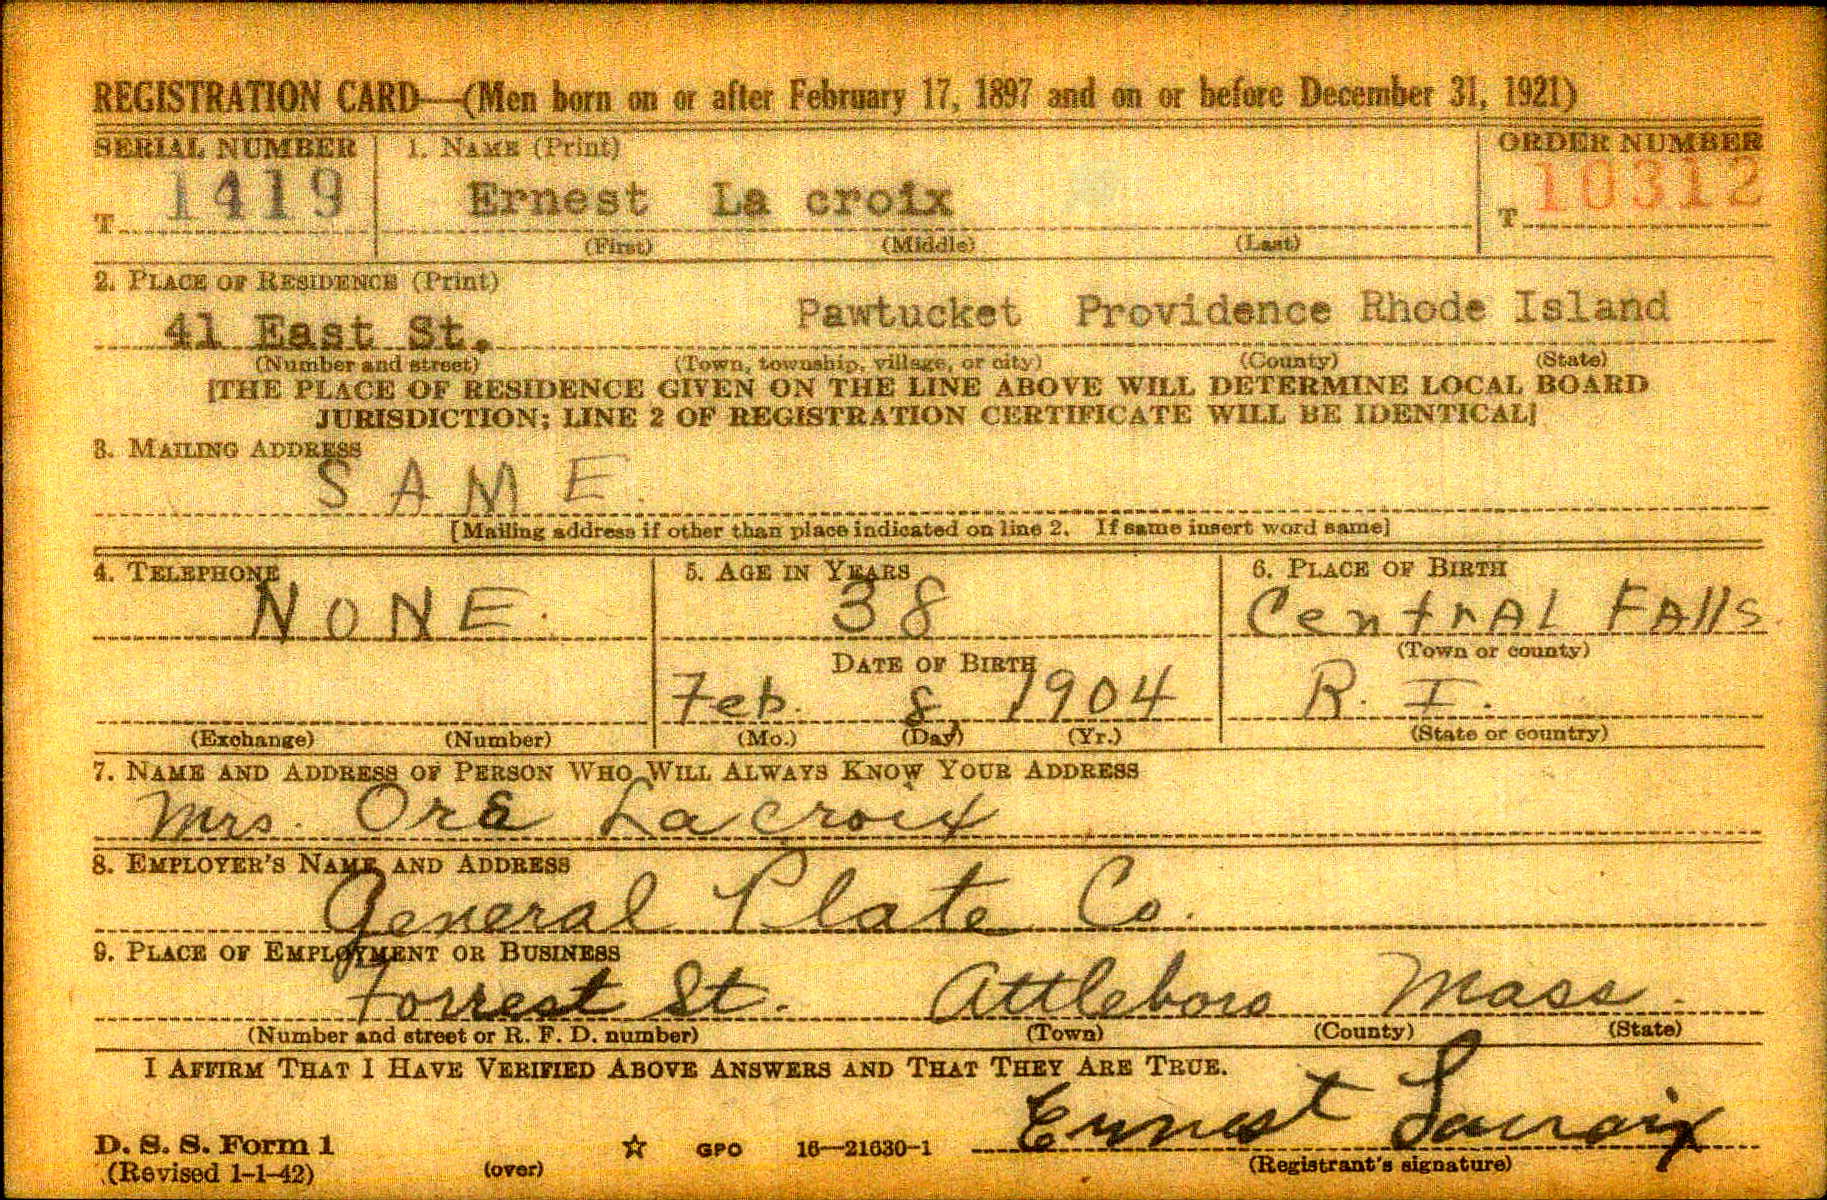 REGISTRATION CARD—(Men born on or after February 17, 1897 and on or before December 31, 1921)
SERIAL NUMBER 1. NAME (Print) ORDER NUMBER
T 1419 Ernest La croix T 10312
(First) (Middle) (Last)
2. PLACE OF RESIDENCE (Print)
41 East St. Pawtucket Providence Rhode Island
(Number and street) (Town, township, village, or city) (County) (State)
[THE PLACE OF RESIDENCE GIVEN ON THE LINE ABOVE WILL DETERMINE LOCAL BOARD
JURISDICTION; LINE 2 OF REGISTRATION CERTIFICATE WILL BE IDENTICAL]
3. MAILING ADDRESS
SAME.
[Mailing address if other than place indicated on line 2. If same insert word same]
4. TELEPHONE 5. AGE IN YEARS 6. PLACE OF BIRTH
NONE. 38 Central Falls
(Town or county)
DATE OF BIRTH
Feb. 8, 1904 R. I.
(Exchange) (Number) (Mo.) (Day) (Yr.) (State or country)
7. NAME AND ADDRESS OF PERSON WHO WILL ALWAYS KNOW YOUR ADDRESS
Mrs. Ora Lacroix
8. EMPLOYER'S NAME AND ADDRESS
General Plate Co.
9. PLACE OF EMPLOYMENT OR BUSINESS
Forrest St. Attleboro Mass.
(Number and street or R. F. D. number) (Town) (County) (State)
I AFFIRM THAT I HAVE VERIFIED ABOVE ANSWERS AND THAT THEY ARE TRUE.
Ernest Lacroix
D. S. S. Form 1 GPO 16—21630-1
(Revised 1-1-42) (over) (Registrant's signature)